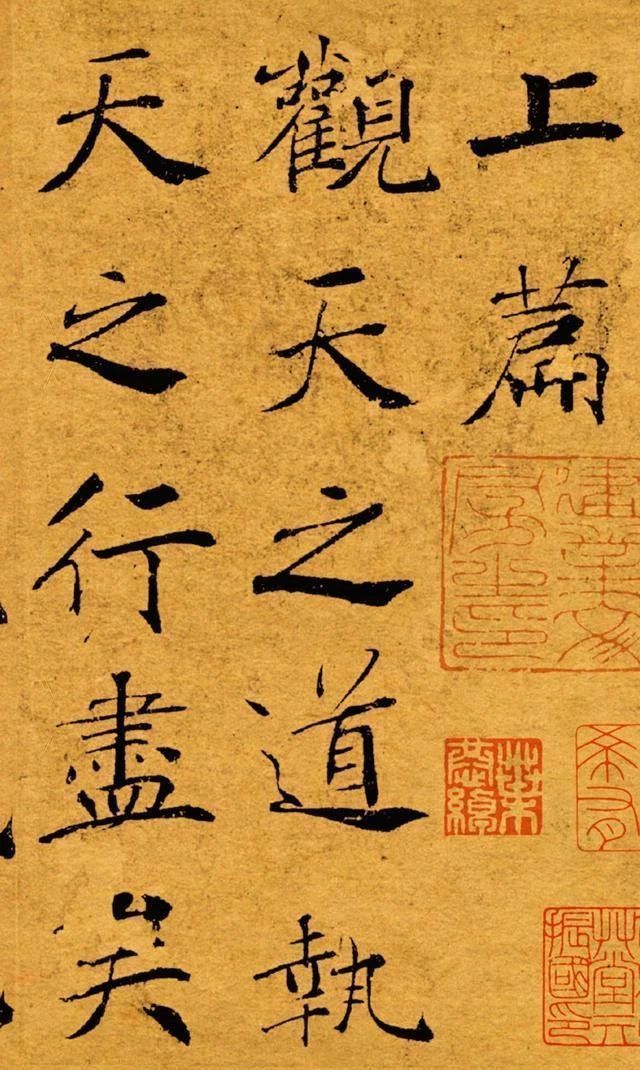 上篇
觀天之道執
天之行盡矣
葉恭綽